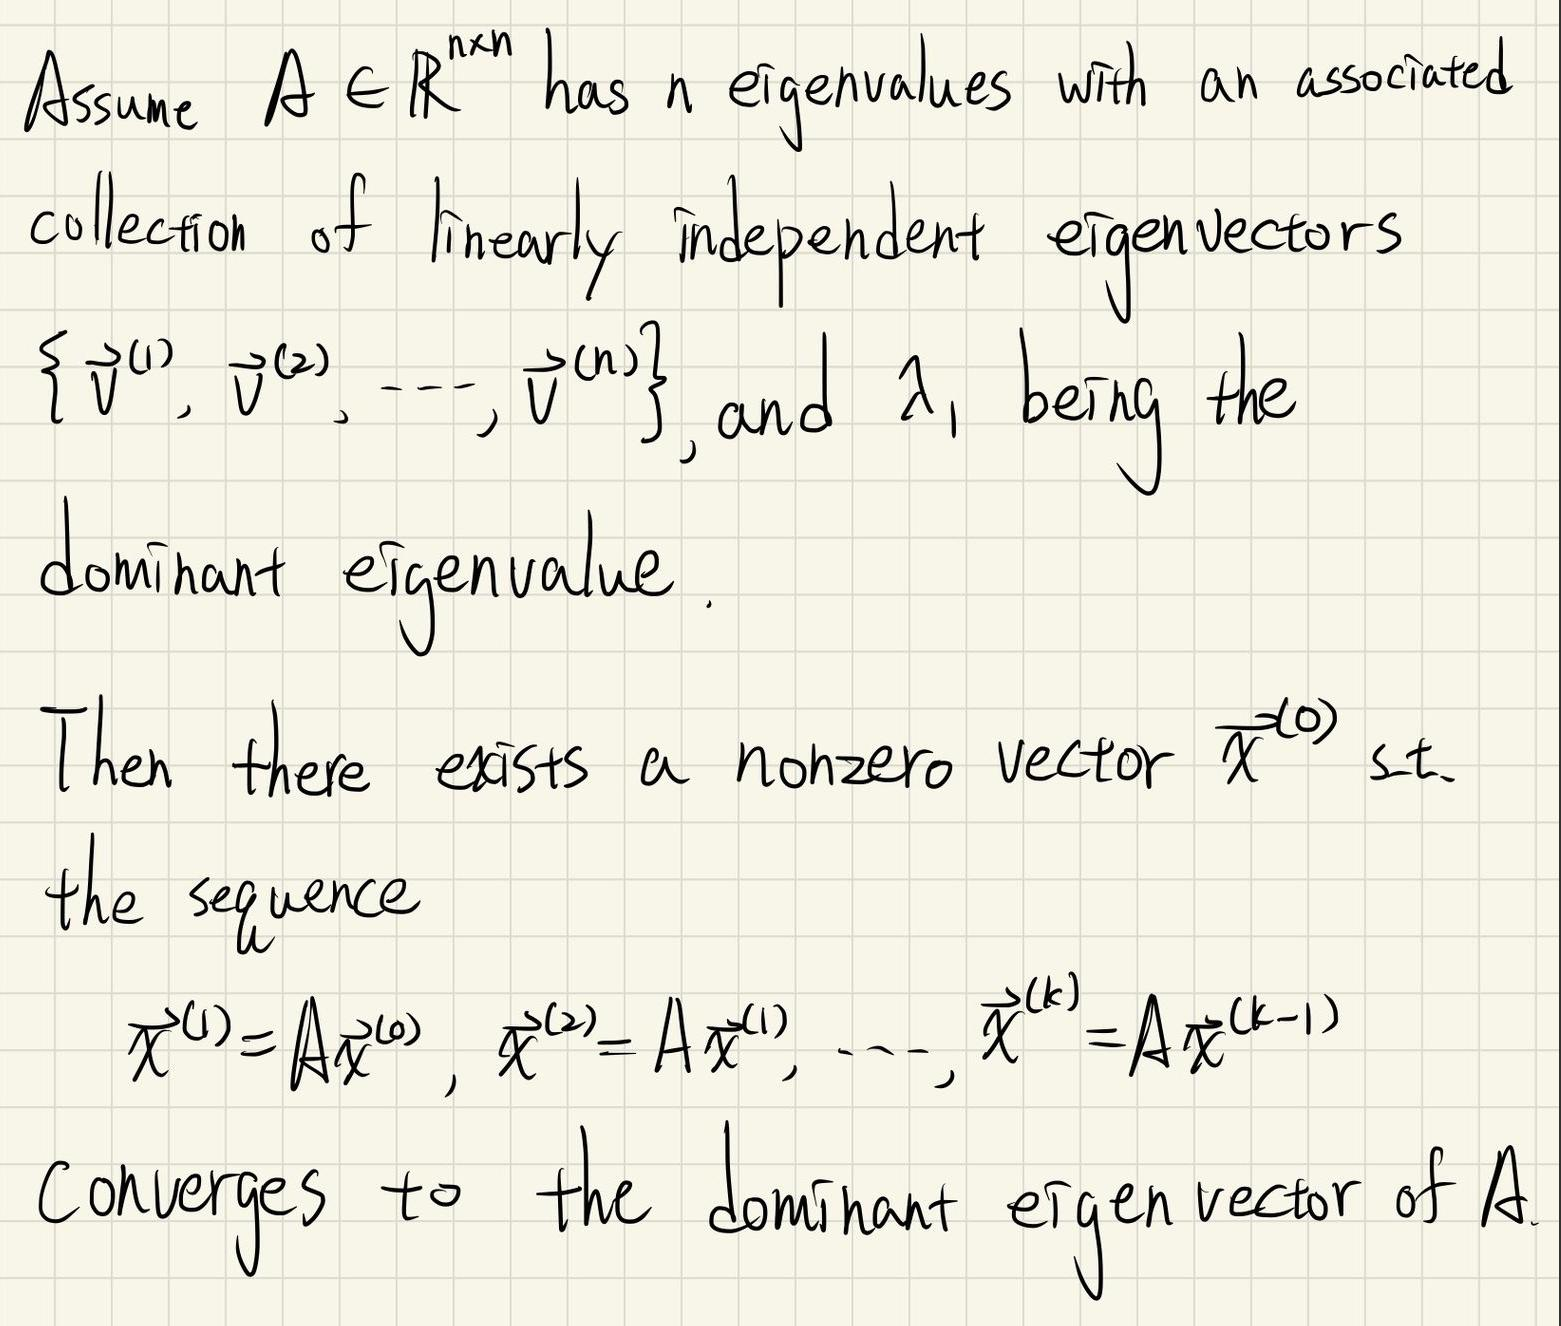 Assume A ∈ ℝ^{n×n} has n eigenvalues with an associated
collection of linearly independent eigenvectors
{ v⃗^{(1)}, v⃗^{(2)}, ---, v⃗^{(n)} }, and λ₁ being the
dominant eigenvalue.
Then there exists a nonzero vector x⃗^{(0)} s.t.
the sequence
x⃗^{(1)} = A x⃗^{(0)}, x⃗^{(2)} = A x⃗^{(1)}, ---, x⃗^{(k)} = A x⃗^{(k-1)}
converges to the dominant eigenvector of A.